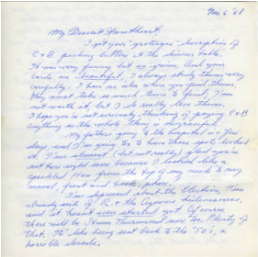 Nov 6 '68
My Dearest Sweetheart,
I got your "grotesque" description of
C & B pushing butter at the dinner table.
It was very funny but so gruesome. And your
cards are beautiful, I always study them very
carefully. I have no idea where you find them.
They must take so much time to find, I'm
not worth it, but I do really love them.
I hope you're not seriously thinking of paying C & B
anything as the whole thing is
My father going to the hospital in a few
days, and I'm going to have these spots looked
at. I'm almost (but not really) glad you're
not here right now because I looked like a
speckled Hen from the top of my neck to my
navel, front and back.
I'm depressed about the Election, I'm
already sick of R. & the Agnews
and it hasn't even started yet. Of course
there will be Strom Thurmond and Co. Plenty of
that. It's like being sent back to the '50's, a
horrible decade.